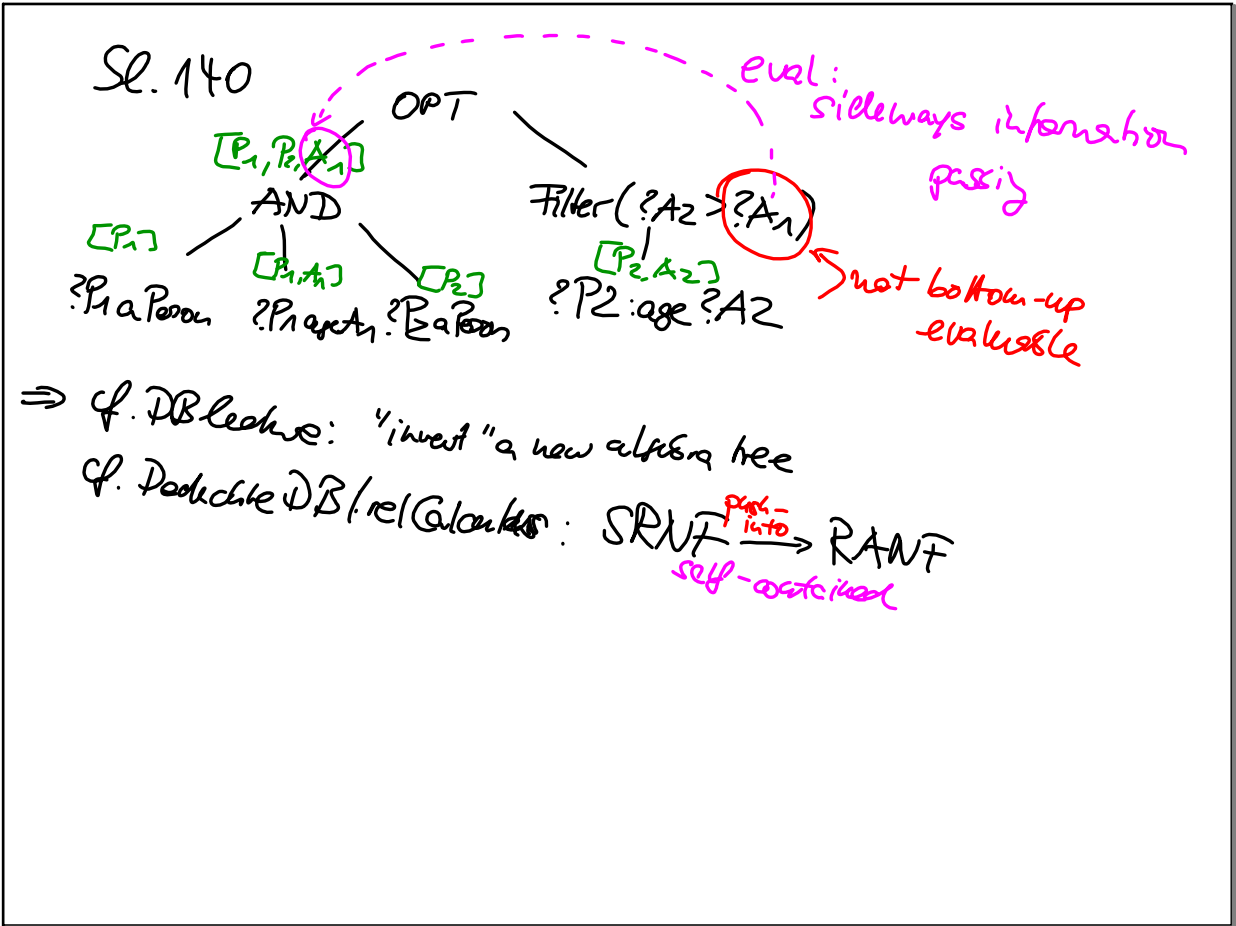 Sl. 140
OPT
eval:
sideways information
passing
[P1, P2, A1]
AND
Filter(?A2 > ?A1)
[P1]
[P1, A1]
[P2]
[P2, A2]
?P1 a Person
?P1 age A1
?P2 a Person
?P2 :age ?A2
not bottom-up
evaluable
⇒ cf. DB lecture: "invent" a new algebra tree
cf. Deductive DB/relCalculus: SRNF push-into → RANF
self-contained